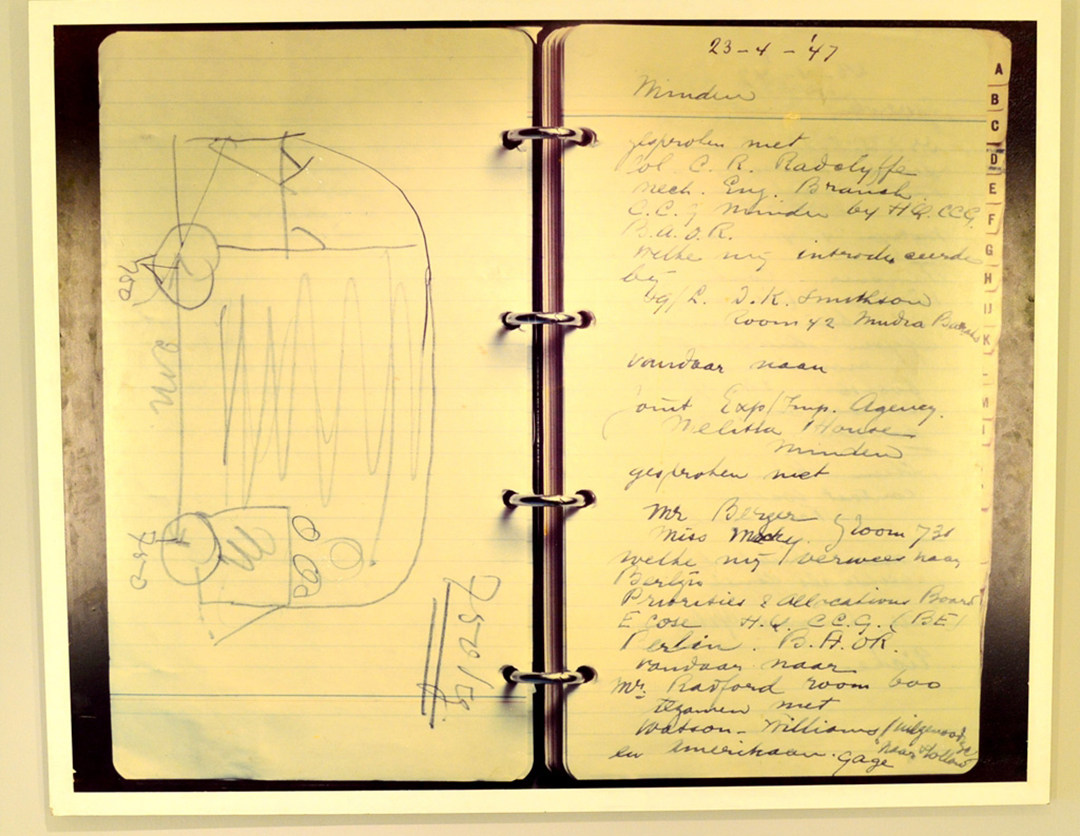 750
2 M
750
750 kg
23-4-'47
Minden
gesproken met
Col. C. R. Radclyffe
Mech. Eng. Branch
C.C.G Minden by HQ. CCG
B.A.O.R.
welke mij introduceerde
bij
Bg/L. D.K. Smithson
Room 42 Mudra
vandaar naar
Joint Exp/Imp. Agency.
Melitta House
Minden
gesproken met
Mr Berger Room 731
Miss Macky.
welke mij verwees naar
Berlijn
Priorities & Allocations Board
H.Q. C.C.G. (BE)
Berlin. B.A.O.R.
vandaar naar
Mr. Radford room 600
tezamen met
Watson-Williams
en Amerikaan. Gage
A
B
C
D
E
F
G
H
IJ
K